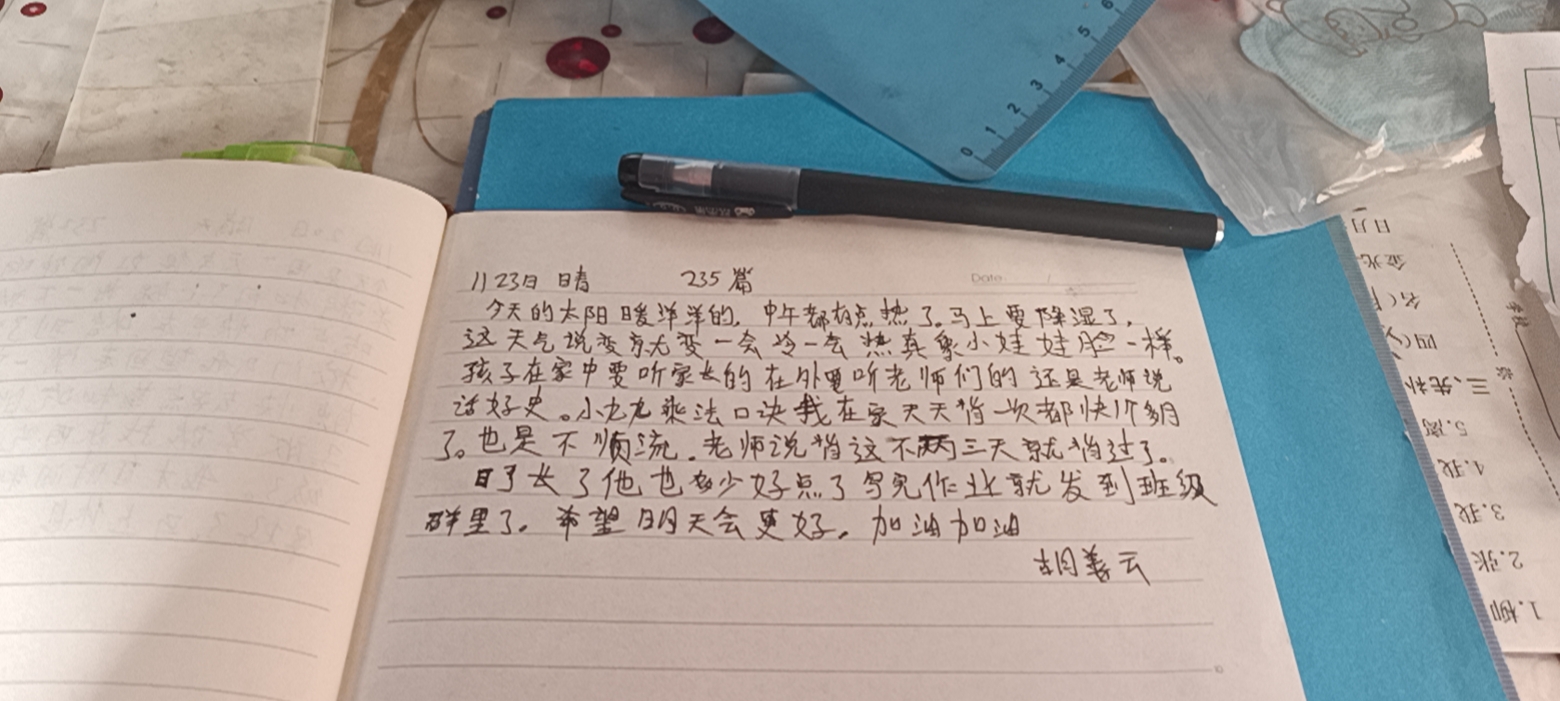 11 23日 晴 235篇
Date
今天的太阳暖洋洋的，中午都有点热了。马上要降湿了，
这天气说变就变一会冷一会热真象小娃娃脸一样。
孩子在家中要听家长的在外面听老师们的还是老师说
话好史。小九九乘法口决我在家天天背一次都快1个多月
了。也是不顺流。老师说背这不两三天就背过了。
日子长了他也多少好点了写完作业就发到班级
群里了。希望明天会更好。加油加油
胡善云
0 1 2 3 4 5 6
日月
金光
名(
四(
三、先补
5.离
4.我
3.我
2.张
1.柳
学校